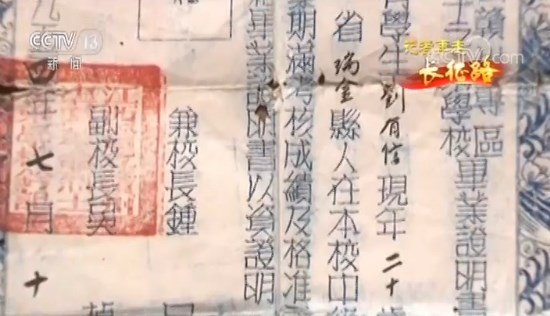 CCTV 13
新闻
记者重走
长征路
學校畢業證明書
學生劉有信現年二十
省瑞金縣人在本校中
期滿考核成績及格准
畢業證明書以資證明
兼校長鍾
副校長吳
四年七月十